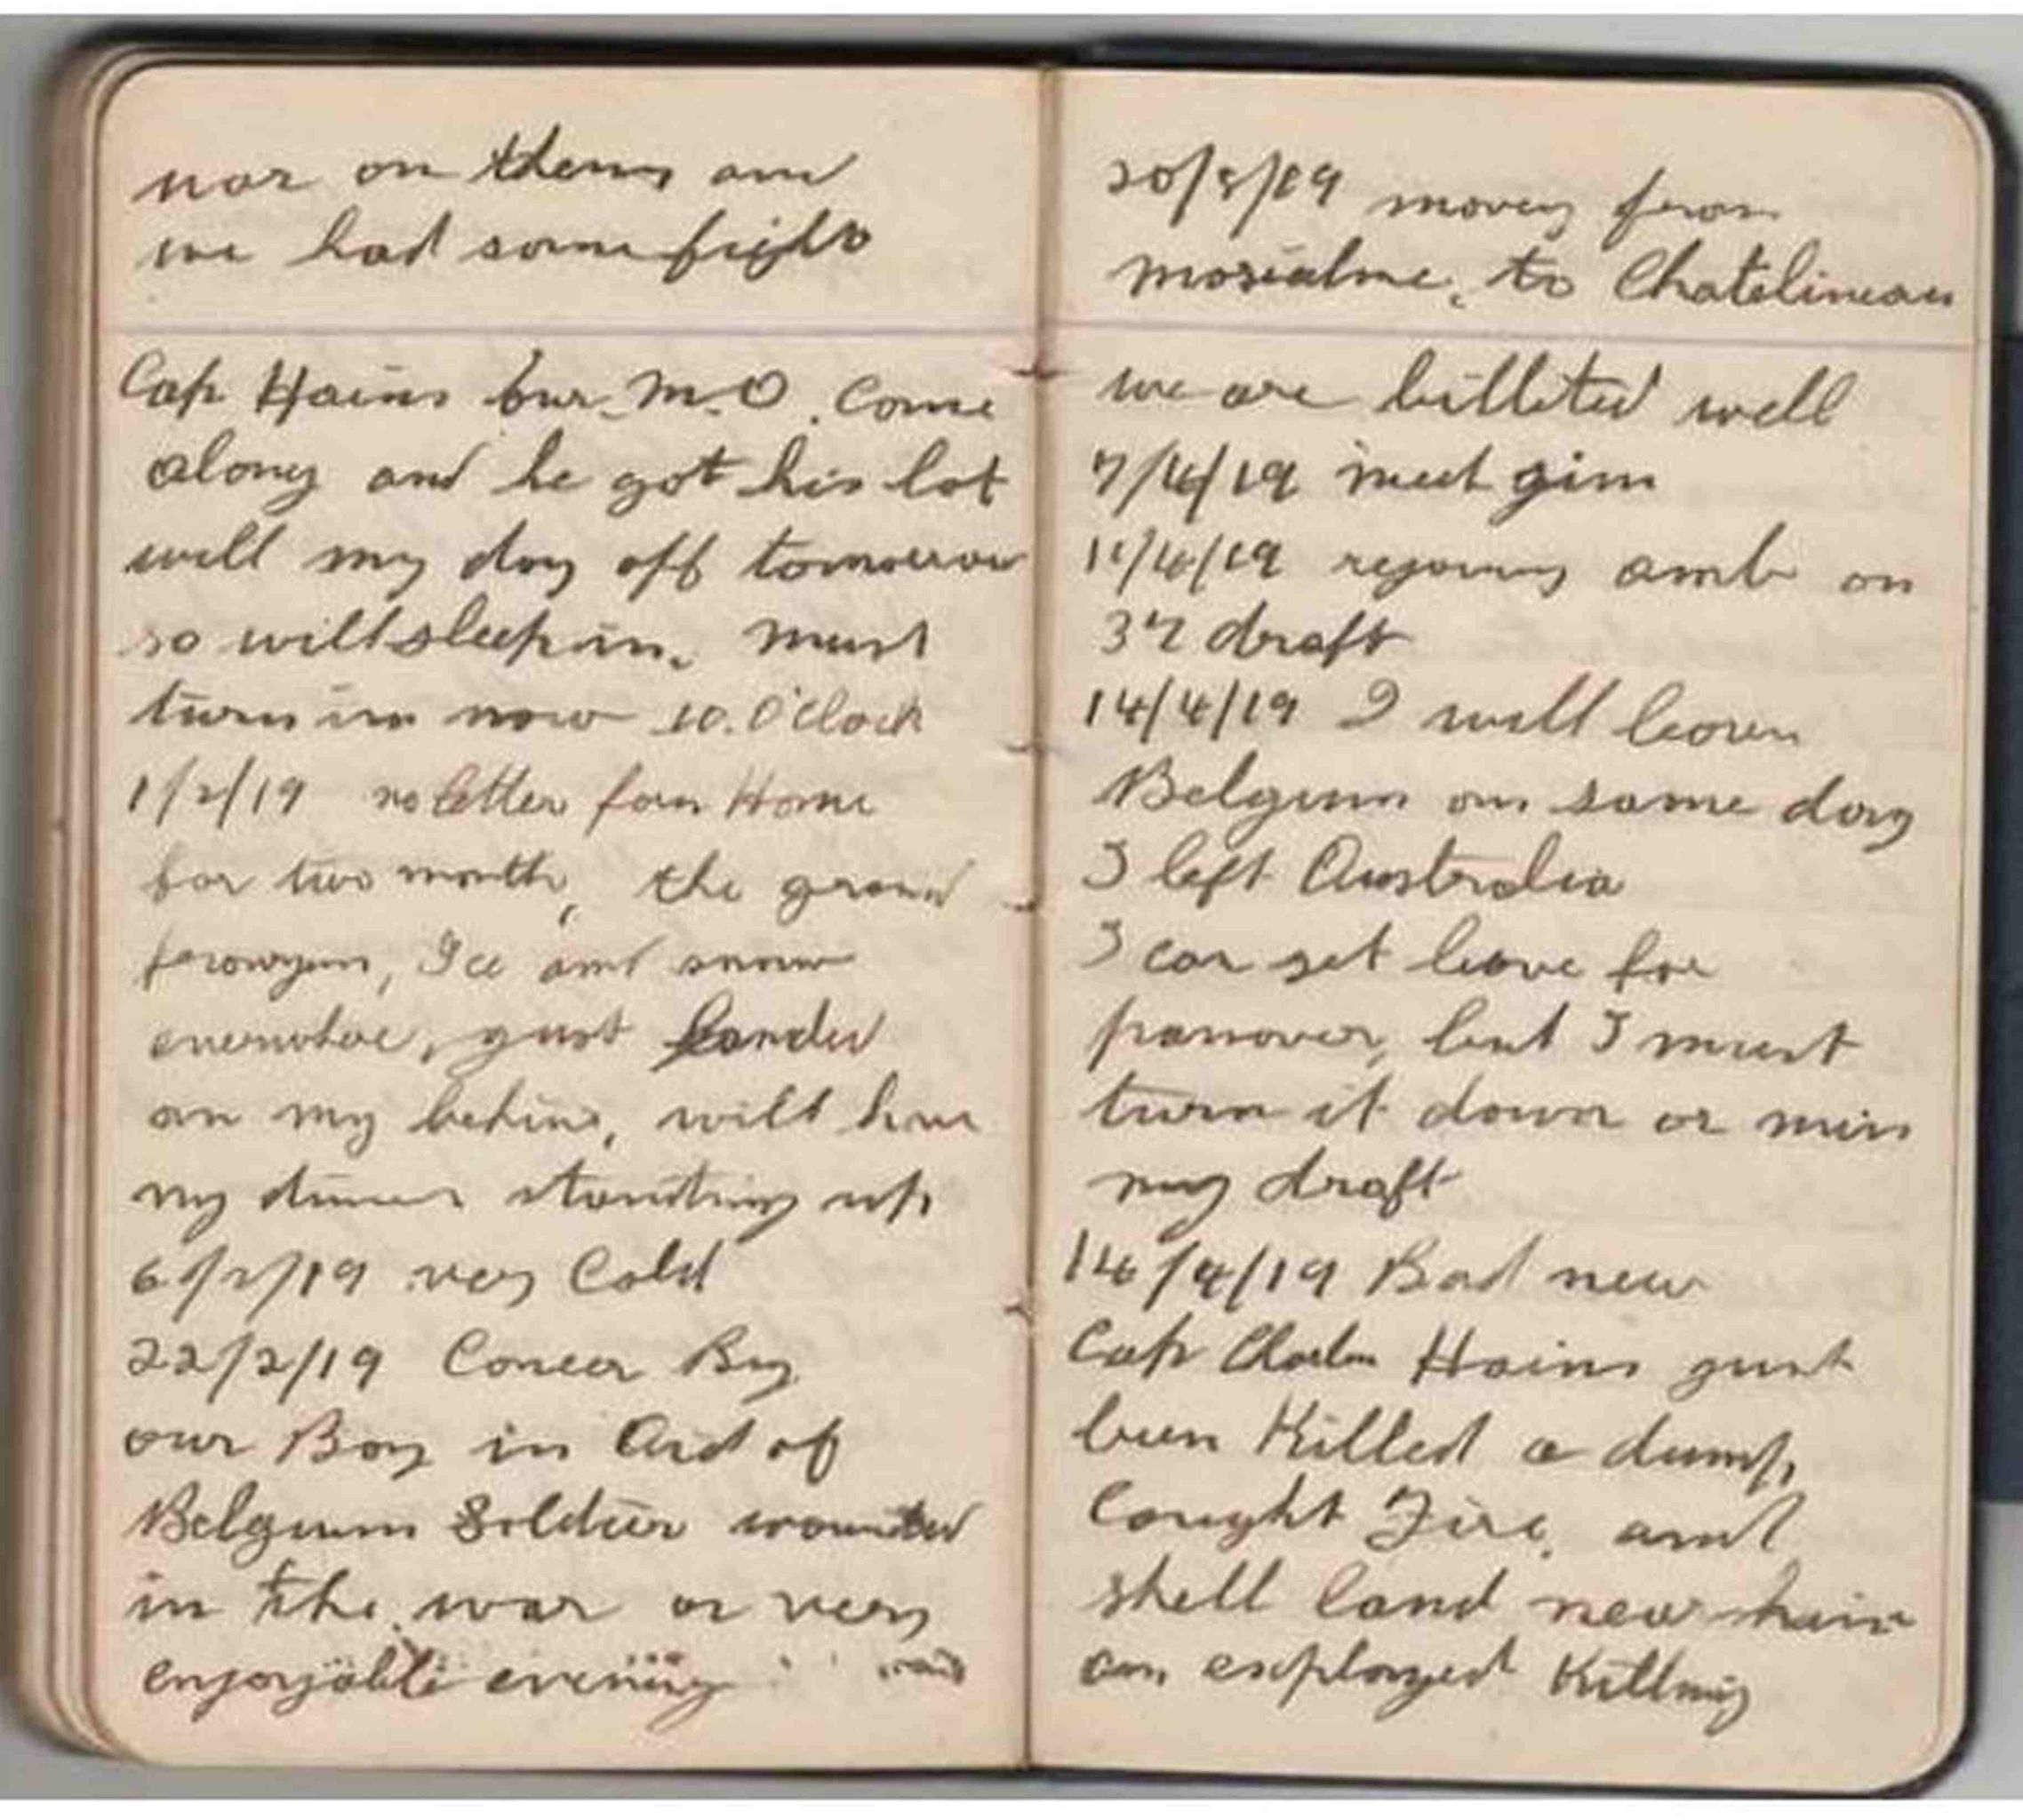 war on them and
we had some fight
Cap Hains our M.O. Come
along and he got his lot
will my day off tomorrow
so will sleep in. must
turn in now 10.O'Clock
1/2/19 no letter from Home
for two month, the ground
Ice and snow
just landed
on my behind, will have
my dinner standing up
6/2/19 very Cold
22/2/19 Concer By
our Boy in Aid of
Belgium Soldier wounded
in the war a very
enjoyable evening
20/3/19 moving from
Morialme, to Chatelineau
we are billited well
7/4/19 meet gim
11/4/19 rejoning amb on
37 draft
14/4/19 I will leave
Belgium on same day
I left Australia
I can get leave for
but I must
turn it down or miss
my draft
14/4/19 Bad new
Cap Charles Hains gust
been Killed a dump
Caught Fire, and
shell land near him
an exployed Killing